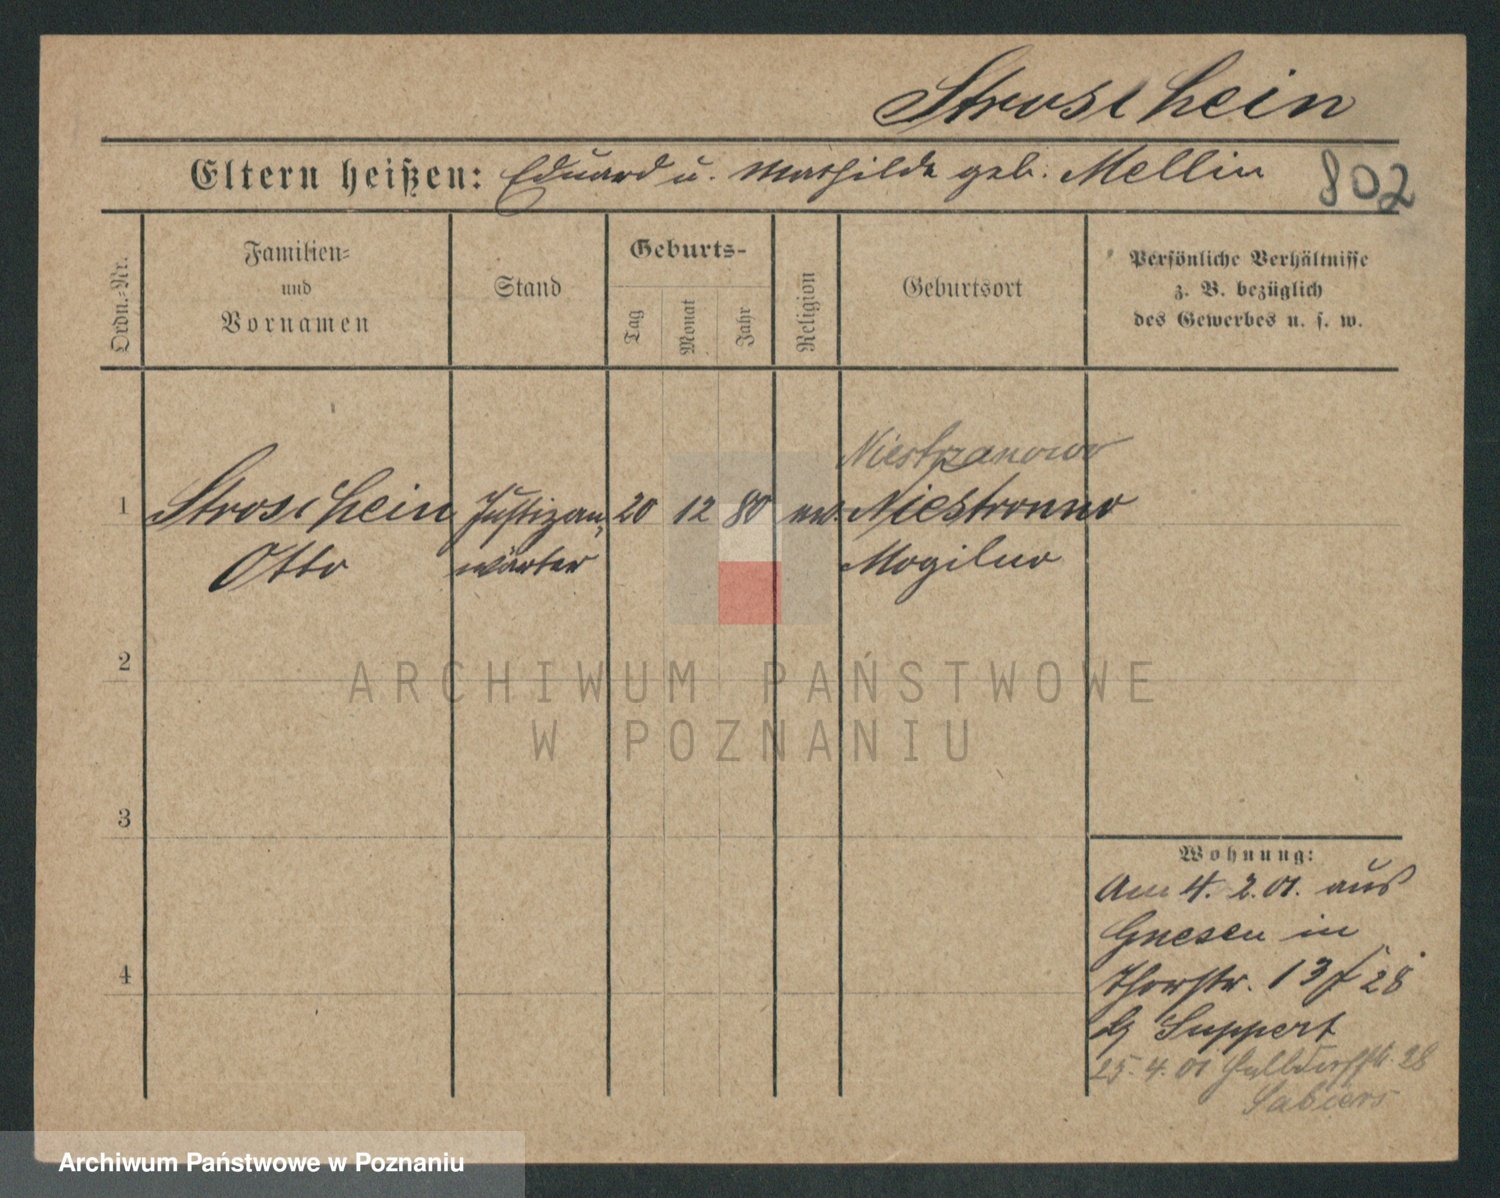 Stroschein
Eltern heißen: Eduard u. Mathilde geb. Mellin
802
Ordn.-Nr.
Familien-
und
Vornamen
Stand
Geburts-
Tag
Monat
Jahr
Religion
Geburtsort
Persönliche Verhältnisse
z. B. bezüglich
des Gewerbes u. s. w.
Niestrzanowo
1 Stroschein Justizan- 20 12 80 ev. Niestronno
Otto wärter Mogilno
2
ARCHIWUM PAŃSTWOWE
W POZNANIU
3
Wohnung:
Am 4. 2. 01. aus
Gnesen in
Thorstr. 13
4
Suppert
25. 4. 01 28
Archiwum Państwowe w Poznaniu